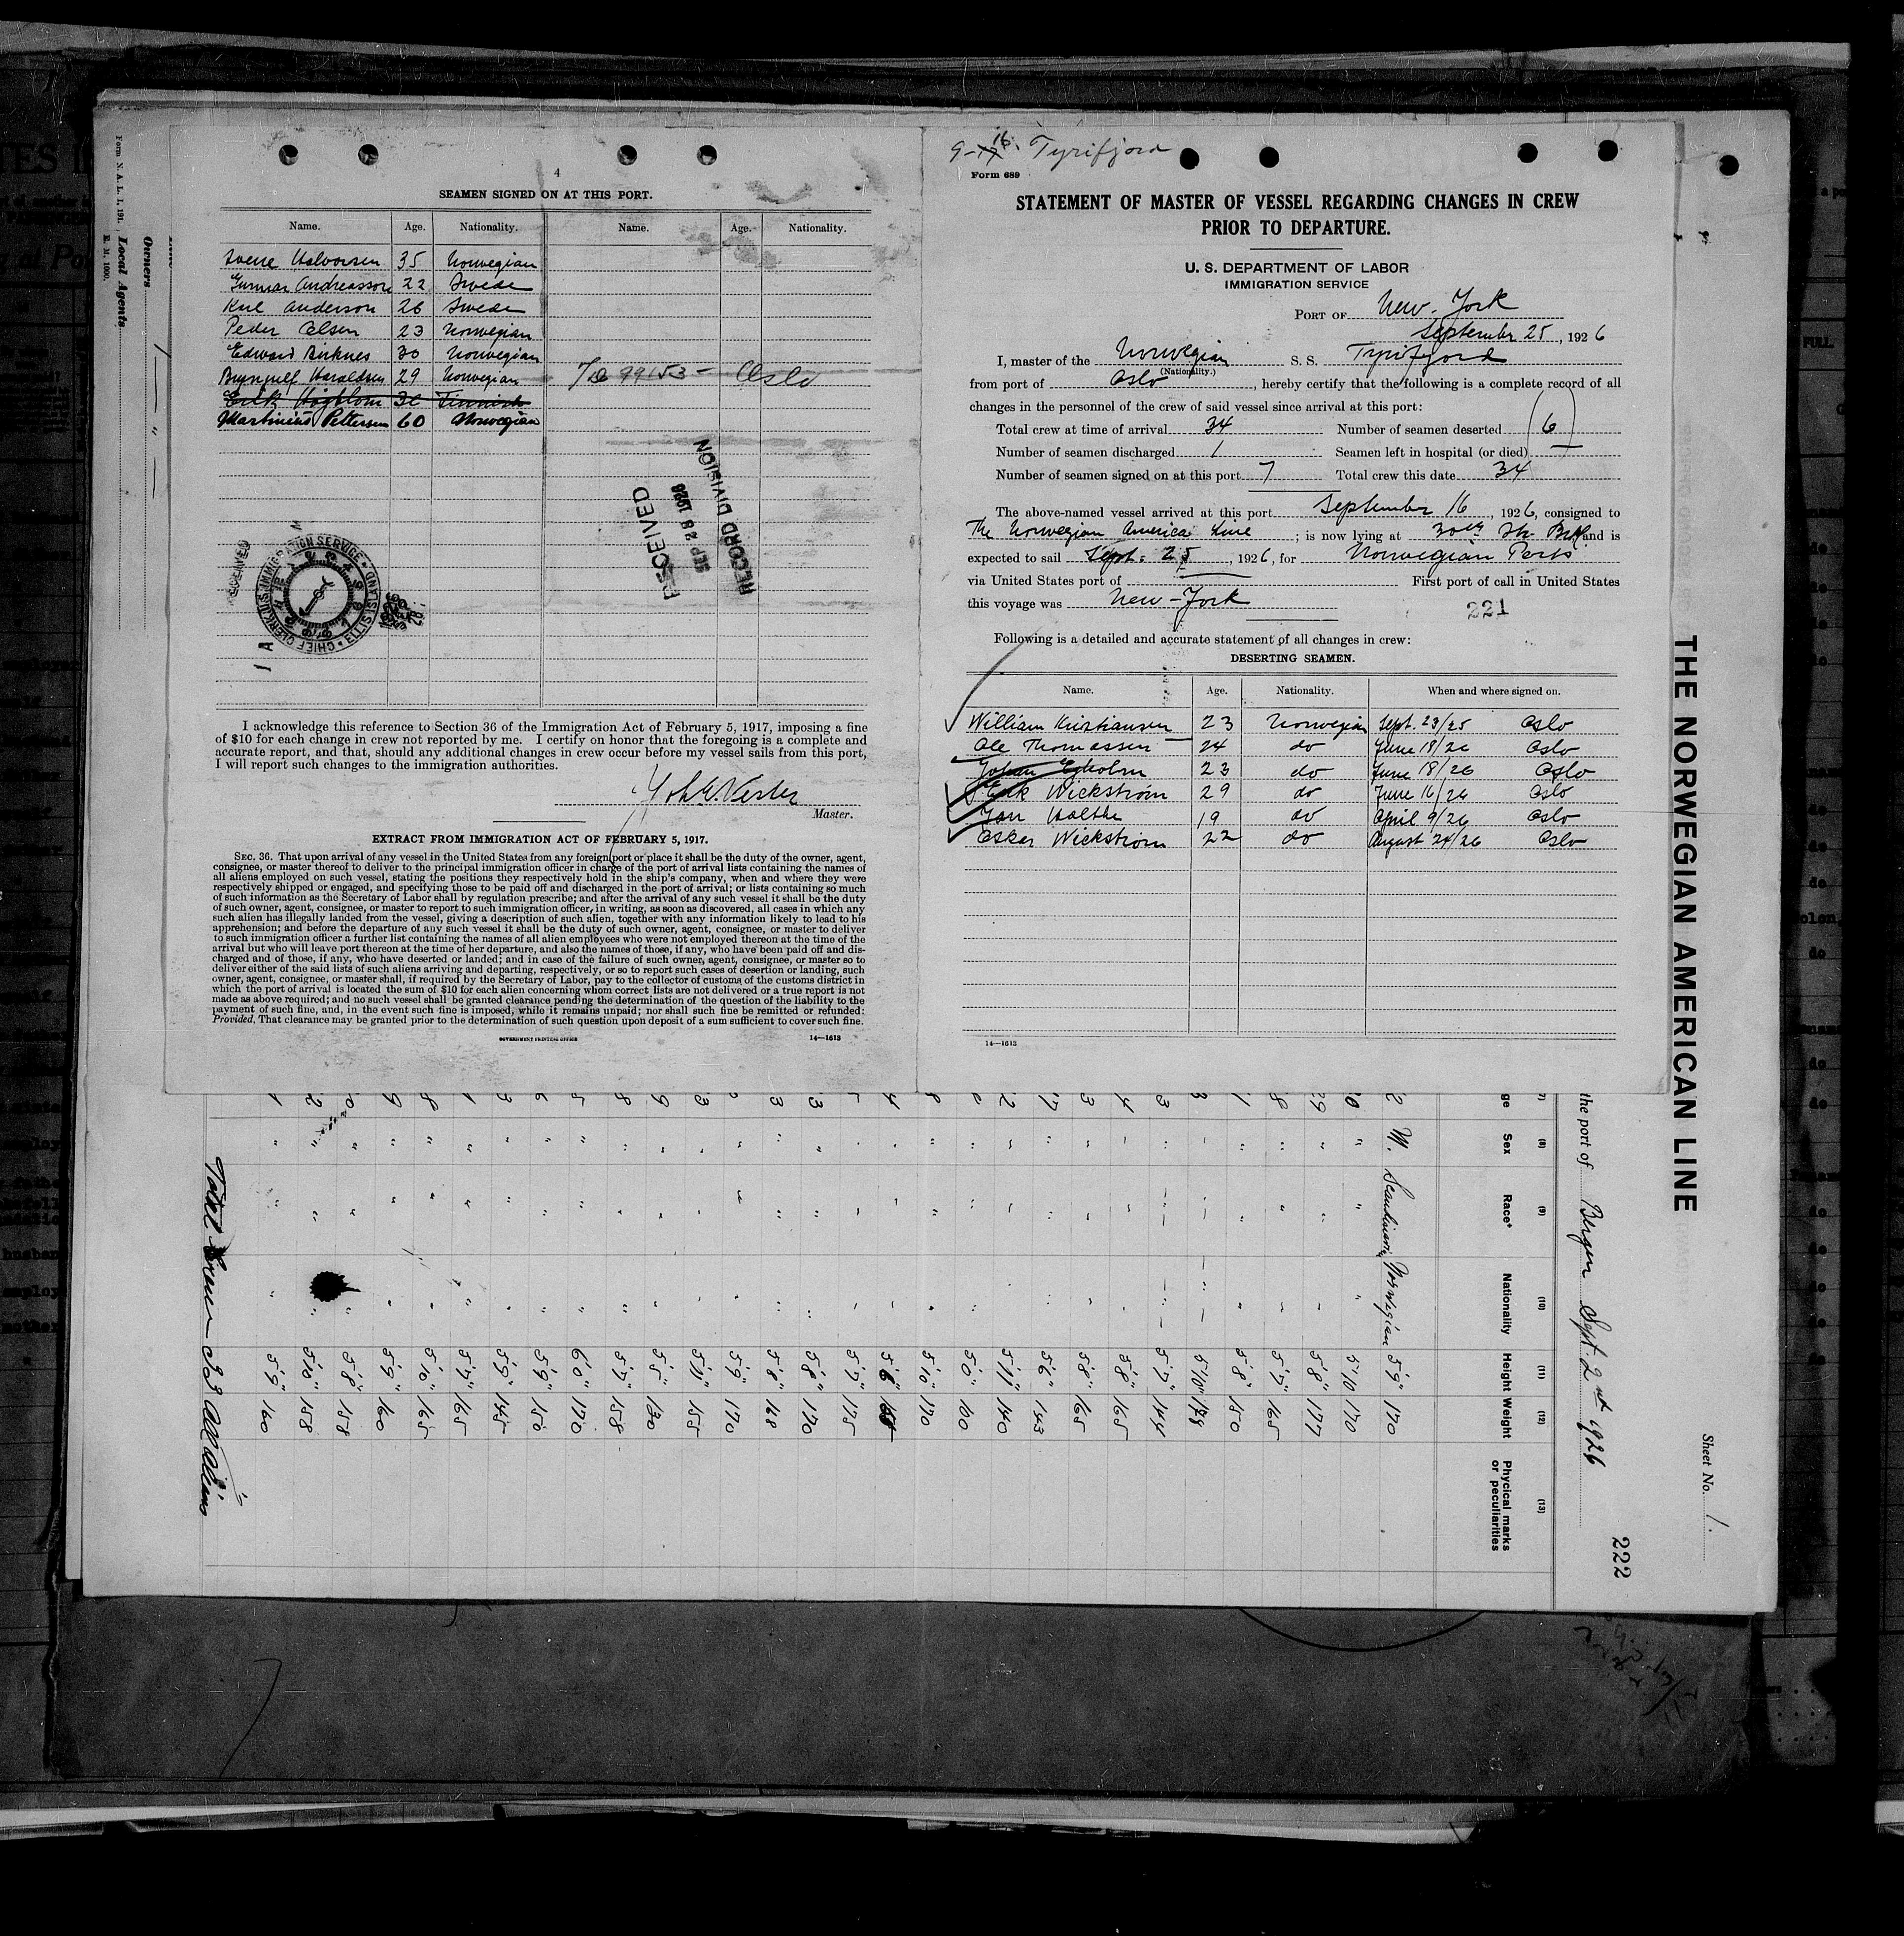 4
SEAMEN SIGNED ON AT THIS PORT.
Name. Age. Nationality. Name. Age. Nationality.
Sverre Halvorsen 35 Norwegian
Gunnar Andreasson 22 Swede
Karl Anderson 26 Swede
Peder Olsen 23 Norwegian
Edward Birknes 30 Norwegian
Brynjulf Haraldsen 29 Norwegian Oslo
Erik Hagblom 30 Finnish
Martinius Pettersen 60 Norwegian
RECEIVED
SEP 28 1926
RECORD DIVISION
RECEIVED
CHIEF CLERK U.S. IMMIGRATION SERVICE ELLIS ISLAND
I acknowledge this reference to Section 36 of the Immigration Act of February 5, 1917, imposing a fine
of $10 for each change in crew not reported by me. I certify on honor that the foregoing is a complete and
accurate report, and that, should any additional changes in crew occur before my vessel sails from this port,
I will report such changes to the immigration authorities.
Master.
EXTRACT FROM IMMIGRATION ACT OF FEBRUARY 5, 1917.
SEC. 36. That upon arrival of any vessel in the United States from any foreign port or place it shall be the duty of the owner, agent,
consignee, or master thereof to deliver to the principal immigration officer in charge of the port of arrival lists containing the names of
all aliens employed on such vessel, stating the positions they respectively hold in the ship's company, when and where they were
respectively shipped or engaged, and specifying those to be paid off and discharged in the port of arrival; or lists containing so much
of such information as the Secretary of Labor shall by regulation prescribe; and after the arrival of any such vessel it shall be the duty
of such owner, agent, consignee, or master to report to such immigration officer, in writing, as soon as discovered, all cases in which any
such alien has illegally landed from the vessel, giving a description of such alien, together with any information likely to lead to his
apprehension; and before the departure of any such vessel it shall be the duty of such owner, agent, consignee, or master to deliver
to such immigration officer a further list containing the names of all alien employees who were not employed thereon at the time of the
arrival but who will leave port thereon at the time of her departure, and also the names of those, if any, who have been paid off and dis-
charged and of those, if any, who have deserted or landed; and in case of the failure of such owner, agent, consignee, or master so to
deliver either of the said lists of such aliens arriving and departing, respectively, or so to report such cases of desertion or landing, such
owner, agent, consignee, or master shall, if required by the Secretary of Labor, pay to the collector of customs of the customs district in
which the port of arrival is located the sum of $10 for each alien concerning whom correct lists are not delivered or a true report is not
made as above required; and no such vessel shall be granted clearance pending the determination of the question of the liability to the
payment of such fine, and, in the event such fine is imposed, while it remains unpaid; nor shall such fine be remitted or refunded:
Provided, That clearance may be granted prior to the determination of such question upon deposit of a sum sufficient to cover such fine.
GOVERNMENT PRINTING OFFICE 14—1613
9-16. Tyrifjord
Form 689
STATEMENT OF MASTER OF VESSEL REGARDING CHANGES IN CREW
PRIOR TO DEPARTURE.
U. S. DEPARTMENT OF LABOR
IMMIGRATION SERVICE
PORT OF New-York
September 25, 1926
I, master of the Norwegian S. S. Tyrifjord
(Nationality.)
from port of Oslo, hereby certify that the following is a complete record of all
changes in the personnel of the crew of said vessel since arrival at this port:
Total crew at time of arrival 34 Number of seamen deserted (6)
Number of seamen discharged 1 Seamen left in hospital (or died) —
Number of seamen signed on at this port 7 Total crew this date 34
The above-named vessel arrived at this port September 16, 1926, consigned to
The Norwegian America Line; is now lying at 30th St. and is
expected to sail Sept. 25, 1926, for Norwegian Ports
via United States port of First port of call in United States
this voyage was New-York
221
Following is a detailed and accurate statement of all changes in crew:
DESERTING SEAMEN.
Name. Age. Nationality. When and where signed on.
William Kristiansen 23 Norwegian Sept. 23/25 Oslo
Ole Thomassen 24 do June 18/26 Oslo
Johan Ekholm 23 do June 18/26 Oslo
Erik Wickstrøm 29 do June 16/26 Oslo
Jan Holthe 19 do April 9/26 Oslo
Oskar Wickstrøm 22 do August 24/26 Oslo
14—1613
THE NORWEGIAN AMERICAN LINE
Sheet No. 1.
222
the port of Bergen Sept. 2nd 1926
Form N. A. L. I, 191.
E. M. 1000.
Local Agents
Owners
(8) Sex
(9) Race*
(10) Nationality
(11) Height
(12) Weight
(13) Phycical marks or peculiarities
M. Scandinavia Norwegian 5'9" 170
5'10 170
5'8" 177
5'7" 165
5'8" 150
5'10" 178
5'7" 144
5'8" 165
5'8" 165
5'6" 143
5'11" 140
5'10" 170
5'7" 175
5'8" 170
5'8" 168
5'9" 170
5'11" 155
5'5" 130
5'7" 158
6'0" 170
5'9" 150
5'9" 145
5'7" 165
5'10" 165
5'9" 160
5'8" 158
5'10" 158
5'9" 160
Total Crew 33